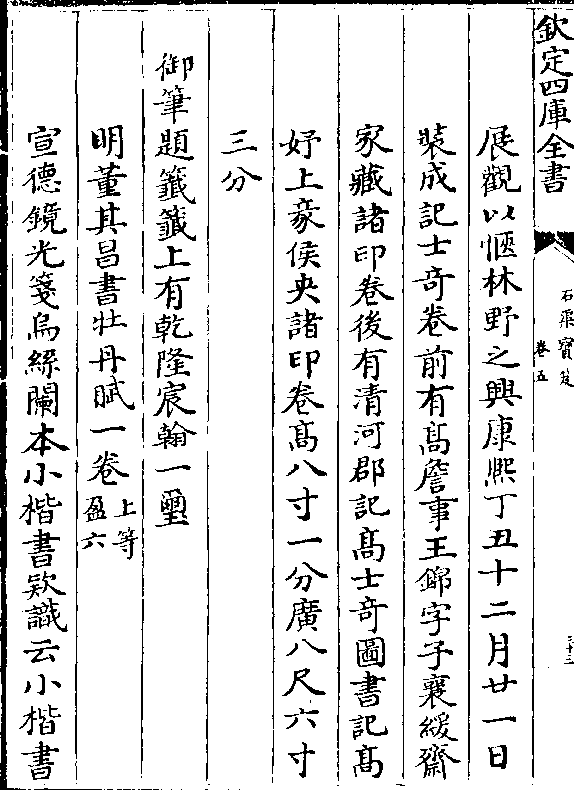 欽定四庫全書
石渠寶笈
卷五
三十三
展觀以愜林野之興康熙丁丑十二月廿一日
裝成記士奇卷前有髙詹事王錦字子襄緩齋
家藏諸印卷後有清河郡記髙士奇圖書記髙
妤上豪侯央諸印卷髙八寸一分廣八尺六寸
三分
御筆題籤籤上有乾隆宸翰一璽
明董其昌書牡丹賦一卷上等
盈六
宣德鏡光箋烏絲闌本小楷書欵識云小楷書